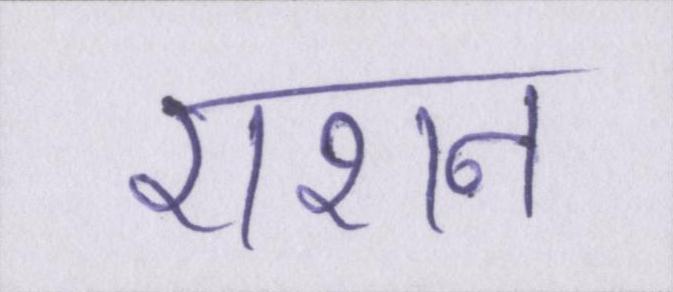 राशन